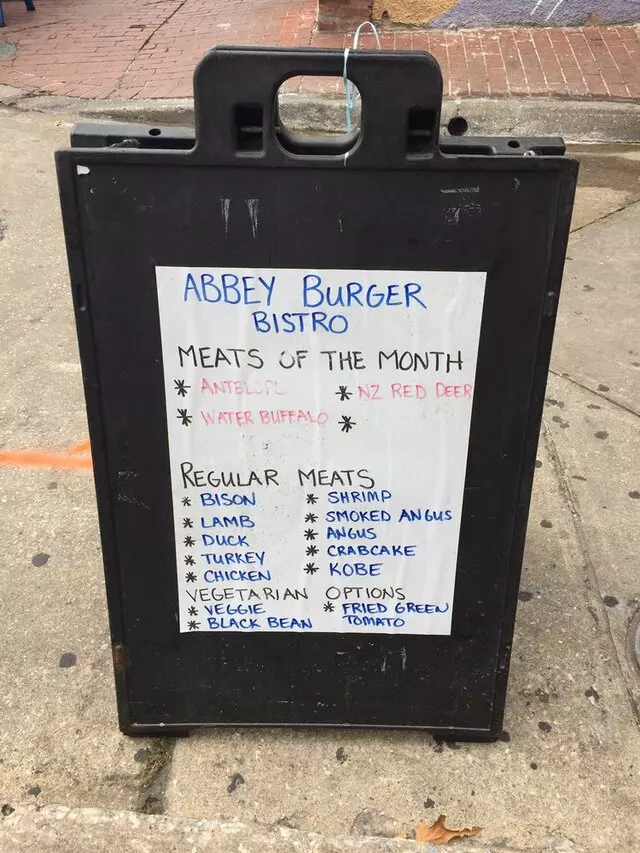 ABBEY BURGER
BISTRO
MEATS OF THE MONTH
* ANTELOPE * NZ RED DEER
* WATER BUFFALO *
REGULAR MEATS
* BISON * SHRIMP
* LAMB * SMOKED ANGUS
* DUCK * ANGUS
* TURKEY * CRABCAKE
* CHICKEN * KOBE
VEGETARIAN OPTIONS
* VEGGIE * FRIED GREEN
* BLACK BEAN TOMATO